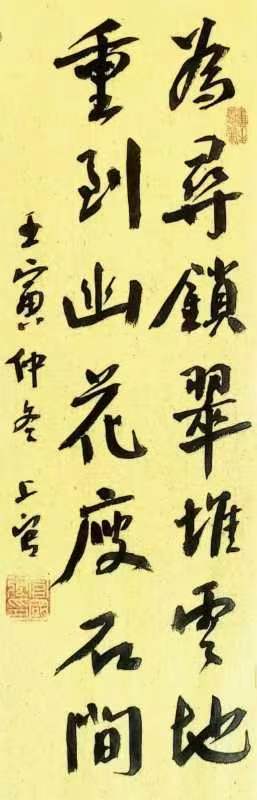 為尋鎖翠堆雲地
重到幽花瘦石間
壬寅仲冬